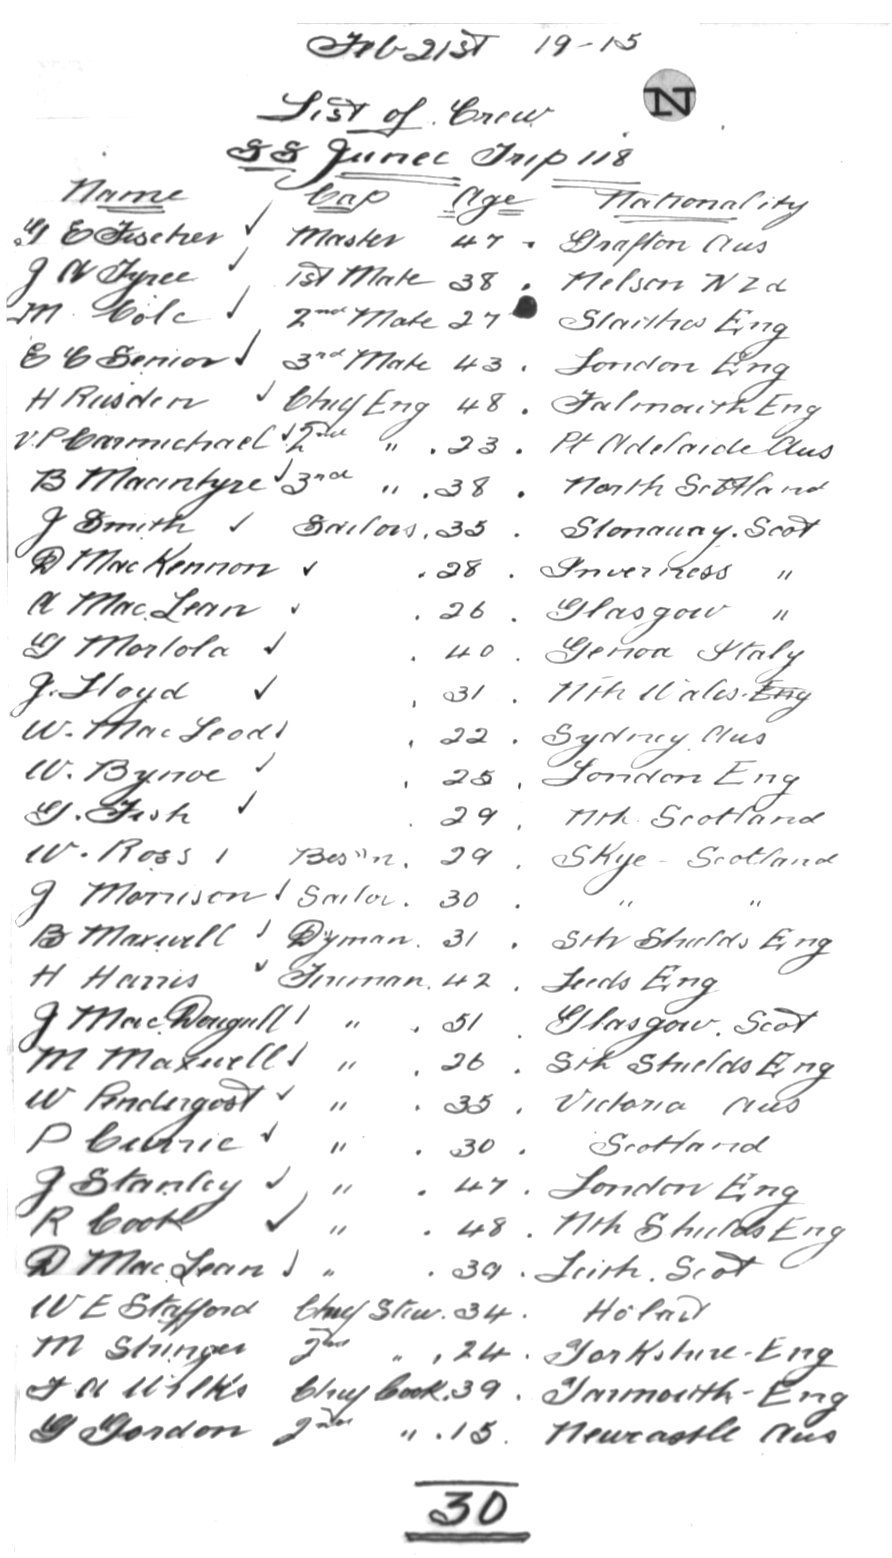 Feb 21st 19-15
N
List of Crew
SS Junee Trip 118
Name Cap Age Nationality
G E Fischer ✓ Master 47 . Grafton Aus
J A Tyree ✓ 1st Mate 38 . Nelson N Zd
M Cole ✓ 2nd Mate 27 Staithes Eng
E C Senior ✓ 3rd Mate 43 . London Eng
H Rusden ✓ Chief Eng 48 . Falmouth Eng
V.P Carmichael ✓ 2nd " . 23 . Pt Adelaide Aus
B Macintyre ✓ 3rd " . 38 . North Scotland
J Smith ✓ Sailors . 35 . Stonaway . Scot
D MacKennon ✓ . 28 . Inverness "
A MacLean ✓ . 26 . Glasgow "
G Mortola ✓ . 40 . Genoa Italy
J. Lloyd ✓ . 31 . Nth Wales . Eng
W. MacLeod ✓ . 22 . Sydney Aus
W. Bynoe ✓ . 25 . London Eng
G. Fish ✓ . 29 . Nth Scotland
W. Ross ✓ Bos"n . 29 . Skye - Scotland
J Morrison ✓ Sailor . 30 . " "
B Maxwell ✓ Dyman . 31 . Sth Shields Eng
H Harris ✓ Fireman . 42 . Leeds Eng
J MacDougull ✓ " . 51 . Glasgow . Scot
M Maxwell ✓ " . 26 . Sth Shields Eng
W Pendergost ✓ " . 35 . Victoria Aus
P Currie ✓ " . 30 . Scotland
J Stanley ✓ " . 47 . London Eng
R Cook ✓ " . 48 . Nth Shields Eng
D MacLean ✓ " . 39 . Leith . Scot
W E Stafford Chief Stew . 34 . Hobart
M Stringer 2nd " . 24 . Yorkshire - Eng
F A Wilks Chief Cook . 39 . Yarmouth - Eng
G Gordon 2nd " . 15 . Newcastle Aus
30